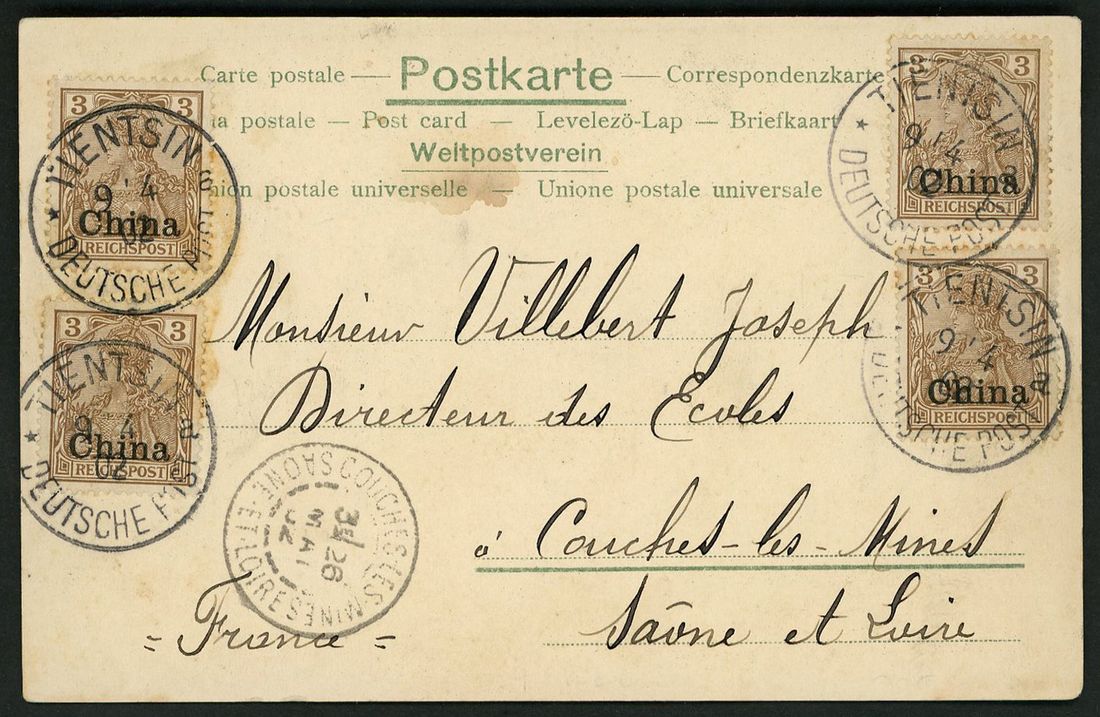 Carte postale — Postkarte — Correspondenzkarte
postale — Post card — Levelező-Lap — Briefkaart
Weltpostverein
nion postale universelle — Unione postale universale
3 3
China
REICHSPOST
TIENTSIN a
9/4
02
* DEUTSCHE POST
3 3
China
REICHSPOST
TIENTSIN a
9/4
02
* DEUTSCHE POST
3 3
China
REICHSPOST
TIENTSIN a
9/4
02
* DEUTSCHE POST
3 3
China
REICHSPOST
TIENTSIN a
9/4
02
DEUTSCHE POST
Monsieur Villebert Joseph
Directeur des Ecoles
à Couches-les-Mines
Saône et Loire
= France =
COUCHES-LES-MINES
26
MAI
02
SAONE-ET-LOIRE